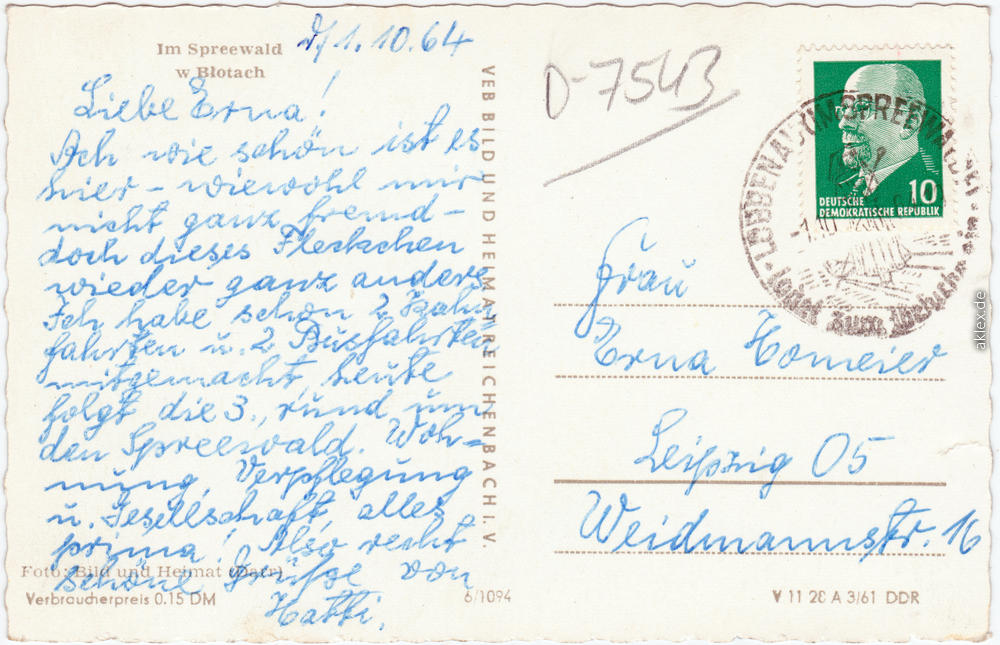 Im Spreewald
w Błotach
1.10.64
Liebe Erna!
Ach wie schön ist es
hier - wiewohl mir
nicht ganz fremd -
doch dieses Fleckchen
wieder ganz anders.
Ich habe schon 2 Kahn
fahrten u. 2 Busfahrten
mitgemacht, heute
folgt die 3., rund um
den Spreewald. Woh-
nung, Verpflegung
u. Gesellschaft, alles
prima! Also recht
schöne Grüße von
Hatti.
Foto: Bild und Heimat (Darr)
Verbraucherpreis 0.15 DM
6/1094
VEB BILD UND HEIMAT REICHENBACH I. V.
D-7543
10
DEUTSCHE
DEMOKRATISCHE REPUBLIK
LÜBBENAU IM SPREEWALD
-1.10
ladet zum
Frau
Erna Homeier
Leipzig O5
Weidmannstr. 16
V 11 28 A 3/61 DDR
aklex.de